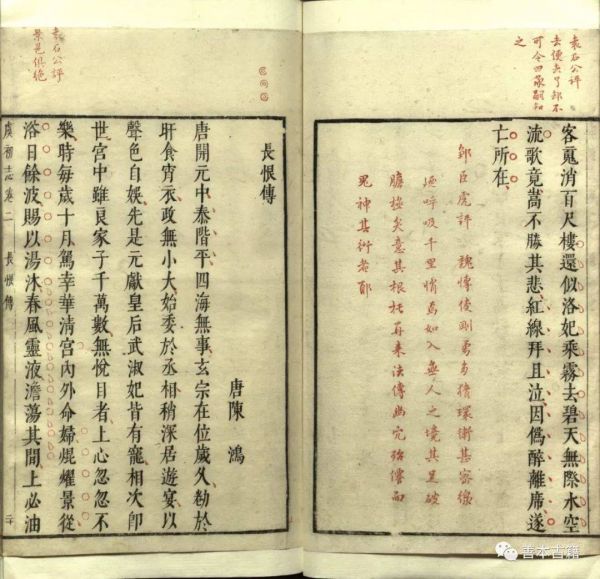 袁石公評
去便去了却不
可令四家嗣知
之
客䰟消百尺樓還似洛妃乘霧去碧天無際水空
流歌竟嵩不勝其悲紅線拜且泣因僞醉離席遂
亡所在
鄒臣虎評 魏博使剛勇多猜環衛甚密線
呼吸千里悄焉如入無人之境其足破
膽極矣意其根柢再來法傳幽而
鬼神其術者耶
袁石公評
景色俱絶
長恨傳
唐陳鴻
唐開元中泰階平四海無事玄宗在位歲久勌於
旰食宵衣政無小大始委於丞相稍深居遊宴以
聲色自娛先是元獻皇后武淑妃皆有寵相次卽
世宮中雖良家子千萬數無悅目者上心忽忽不
樂時每歲十月駕幸華清宮內外命婦焜燿景從
浴日餘波賜以湯沐春風靈液澹蕩其間上必油
虞初志卷二 長恨傳 二十
善本古籍